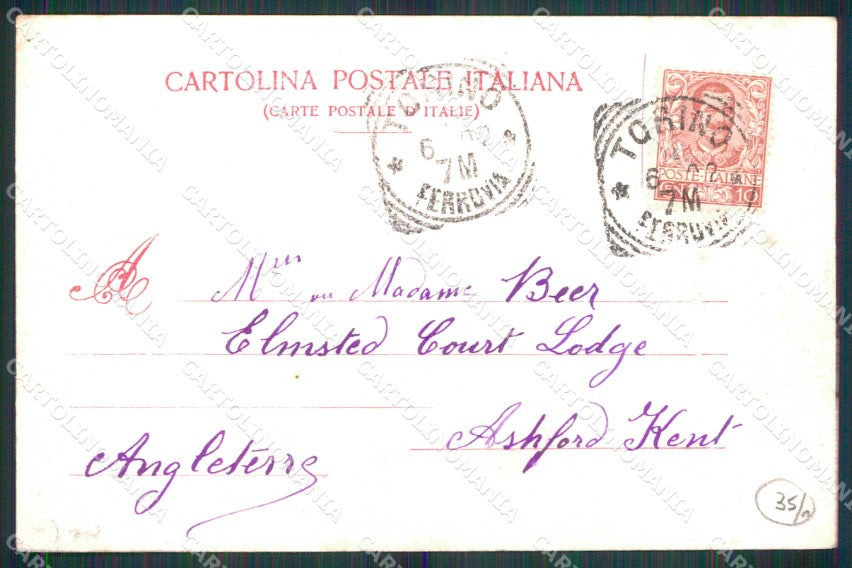 CARTOLINA POSTALE ITALIANA
(CARTE POSTALE D'ITALIE)
TORINO
6
7M
FERROVIA
TORINO
6
7M
FERROVIA
POSTE ITALIANE
CENT. 10
A
Mrs ou Madame Beer
Elmsted Court Lodge
Ashford Kent
Angleterre
35/2
CARTOLINOMANIA